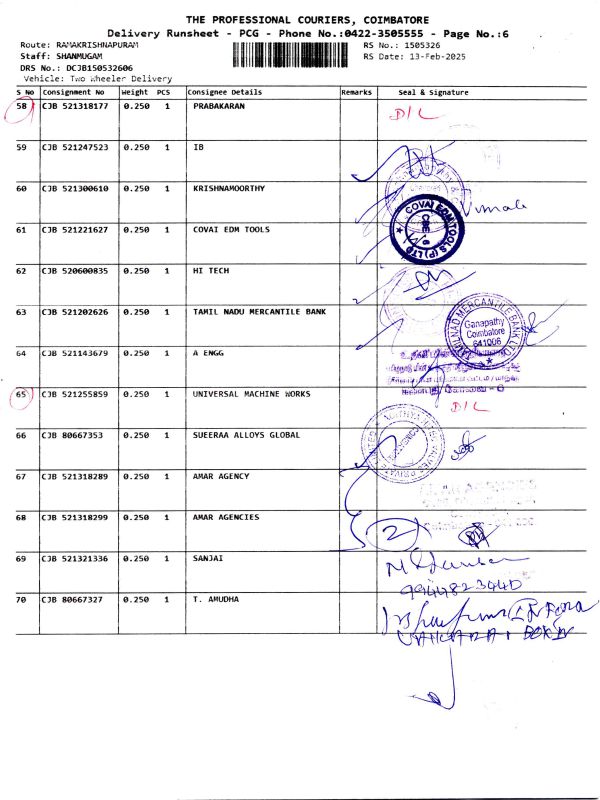 THE PROFESSIONAL COURIERS, COIMBATORE
Delivery Runsheet - PCG - Phone No.:0422-3505555 - Page No.:6
Route: RAMAKRISHNAPURAM RS No.: 1505326
Staff: SHANMUGAM RS Date: 13-Feb-2025
DRS No.: DCJB150532606
Vehicle: Two Wheeler Delivery
S No Consignment No Weight PCS Consignee Details Remarks Seal & signature
58 CJB 521318177 0.250 1 PRABAKARAN D/L
59 CJB 521247523 0.250 1 IB
60 CJB 521300610 0.250 1 KRISHNAMOORTHY Vimala
61 CJB 521221627 0.250 1 COVAI EDM TOOLS COVAI EDM TOOLS (P) LTD
62 CJB 520600835 0.250 1 HI TECH
63 CJB 521202626 0.250 1 TAMIL NADU MERCANTILE BANK TAMILNAD MERCANTILE BANK LTD
Ganapathy
Coimbatore
641006
64 CJB 521143679 0.250 1 A ENGG
65 CJB 521255859 0.250 1 UNIVERSAL MACHINE WORKS D/L
66 CJB 80667353 0.250 1 SUEERAA ALLOYS GLOBAL
67 CJB 521318289 0.250 1 AMAR AGENCY
68 CJB 521318299 0.250 1 AMAR AGENCIES 2
69 CJB 521321336 0.250 1 SANJAI
9944823440
70 CJB 80667327 0.250 1 T. AMUDHA